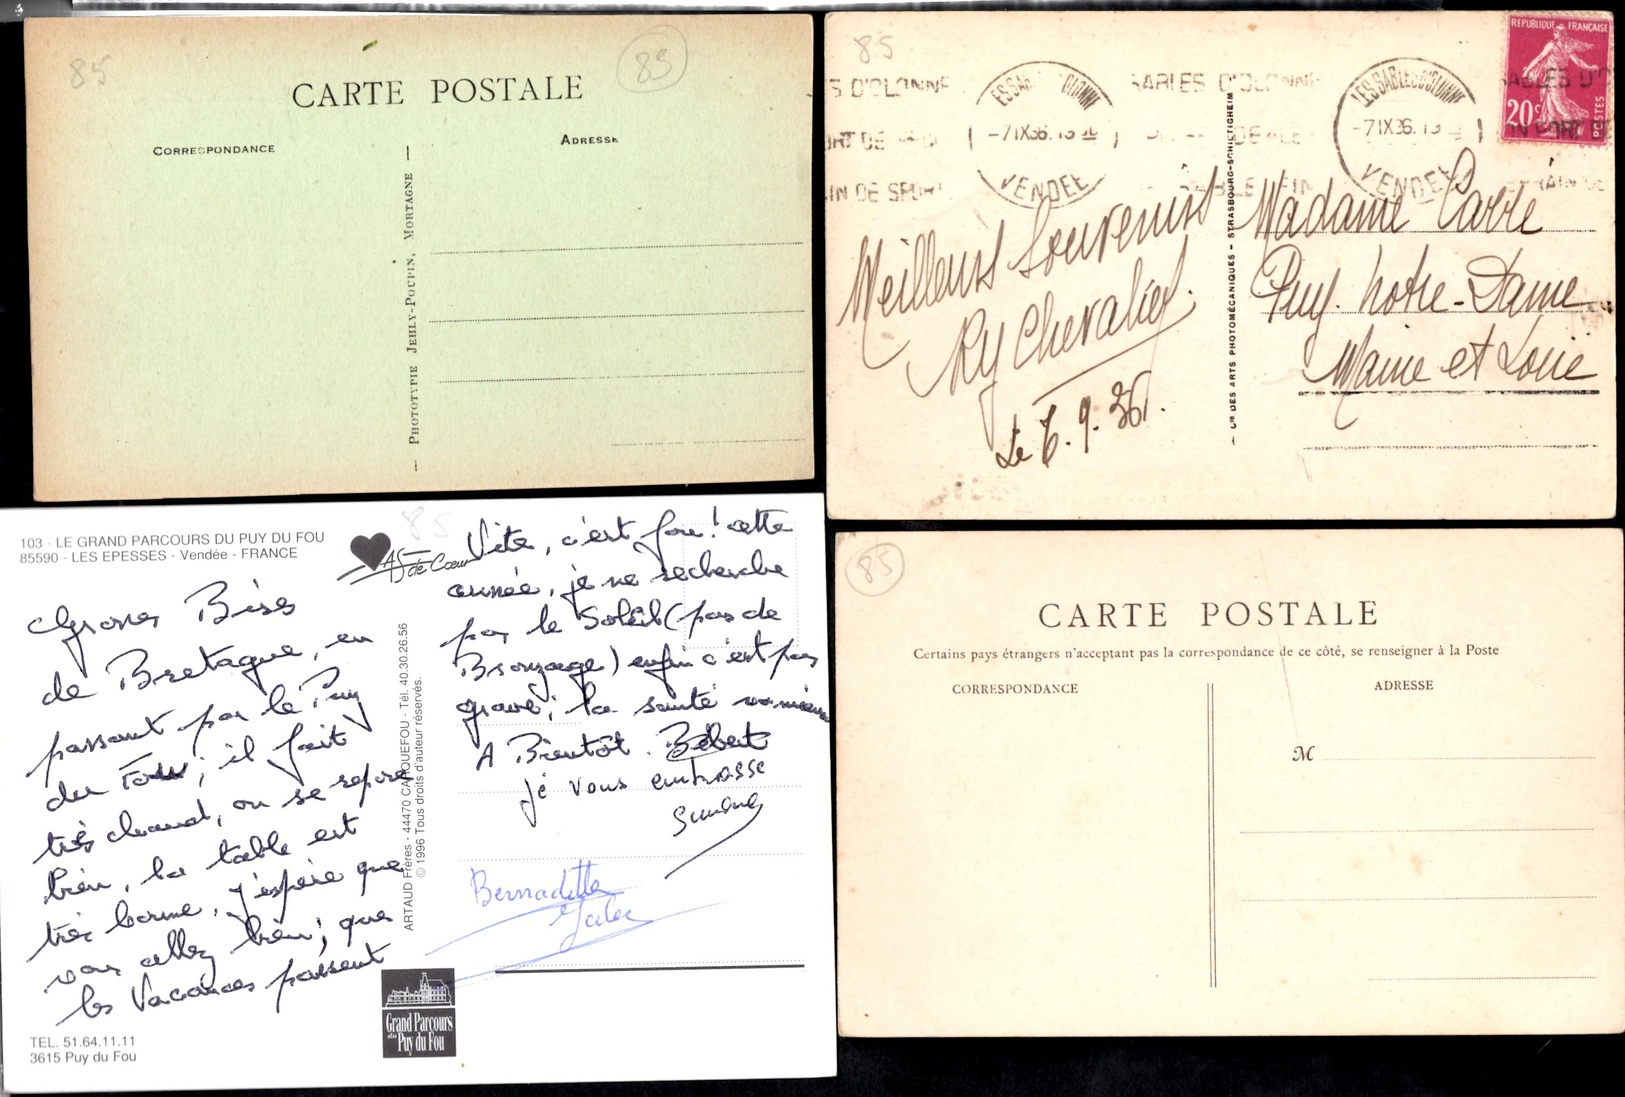 85
85
CARTE POSTALE
CORRESPONDANCE
ADRESSE
PHOTOTYPIE JEHLY-POUPIN, MORTAGNE
85
REPUBLIQUE FRANÇAISE
20c
POSTES
LES SABLES D'OLONNE
-7 IX 36
VENDEE
LES SABLES D'OLONNE
-7 IX 36
VENDEE
SABLES D'OLONNE
Cie DES ARTS PHOTOMÉCANIQUES - STRASBOURG-SCHILTIGHEIM
Meilleurs Souvenirs
Ry Chevalier
Le 6.9.36.
Madame Carré
Puy. Notre-Dame
Maine et Loire
103 - LE GRAND PARCOURS DU PUY DU FOU
85590 - LES EPESSES - Vendée - FRANCE
As de Cœur
85
Grosses Bises
de Bretagne, en
passant par le Puy
du Fou; il fait
très chaud, on se repose
bien, la table est
très bonne, j'espère que
vous allez bien; que
les Vacances passent
Vite, c'est fou! cette
année, je ne recherche
pas le Soleil (pas de
Bronzage) enfin c'est pas
grave; la santé va mieux
A Bientôt. Bébert
je vous embrasse
Simone
Bernadette
ARTAUD Frères - 44470 CARQUEFOU - Tél. 40.30.26.56
© 1996 Tous droits d'auteur réservés.
Grand Parcours
du Puy du Fou
TEL. 51.64.11.11
3615 Puy du Fou
85
CARTE POSTALE
Certains pays étrangers n'acceptant pas la correspondance de ce côté, se renseigner à la Poste
CORRESPONDANCE
ADRESSE
M